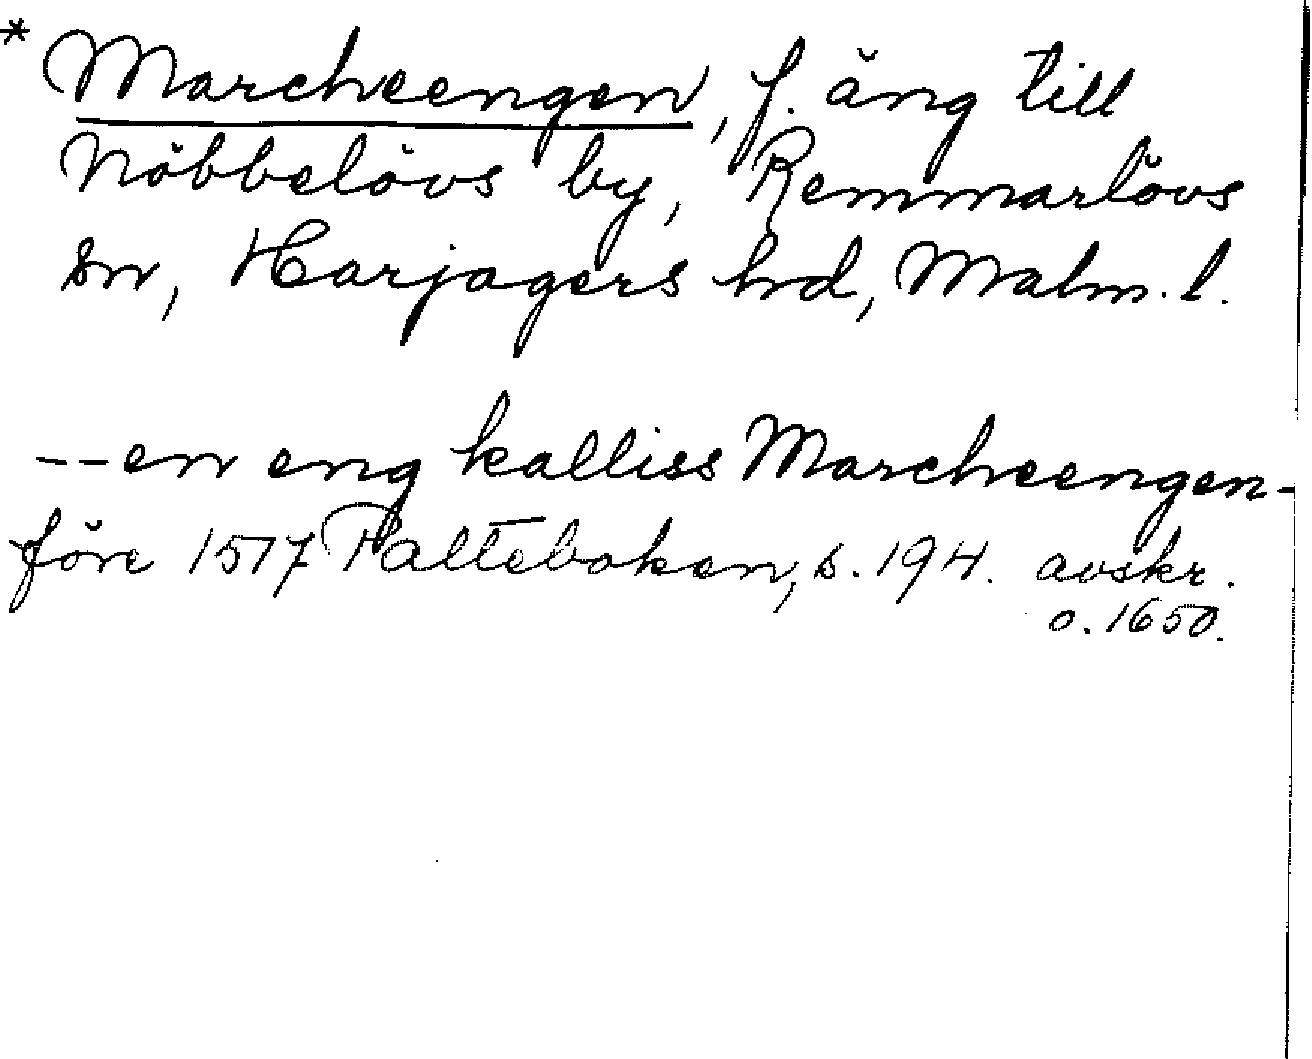 * Marcheengen, f. äng till
Nöbbelövs by, Remmarlövs
sn, Harjagers hd, Malm. l.
-- en eng kalliss Marcheengen -
före 1517 Palteboken, s. 194. avskr.
o. 1650.